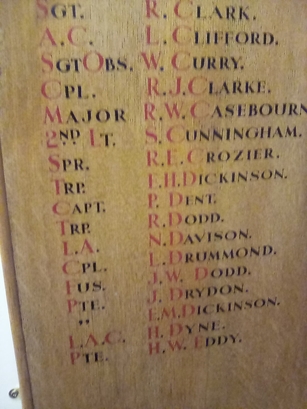 SGT. R. CLARK.
A.C. L. CLIFFORD.
SGTOBS. W. CURRY.
CPL. R.J. CLARKE.
MAJOR R.W. CASEBOURN
2ND LT. S. CUNNINGHAM.
SPR. R.E. CROZIER.
TRP. F.H. DICKINSON.
CAPT. P. DENT.
TRP. R. DODD.
L.A. N. DAVISON.
CPL. L. DRUMMOND.
FUS. J.W. DODD.
PTE. J. DRYDON.
" E.M. DICKINSON.
L.A.C. H. DYNE.
PTE. H.W. EDDY.